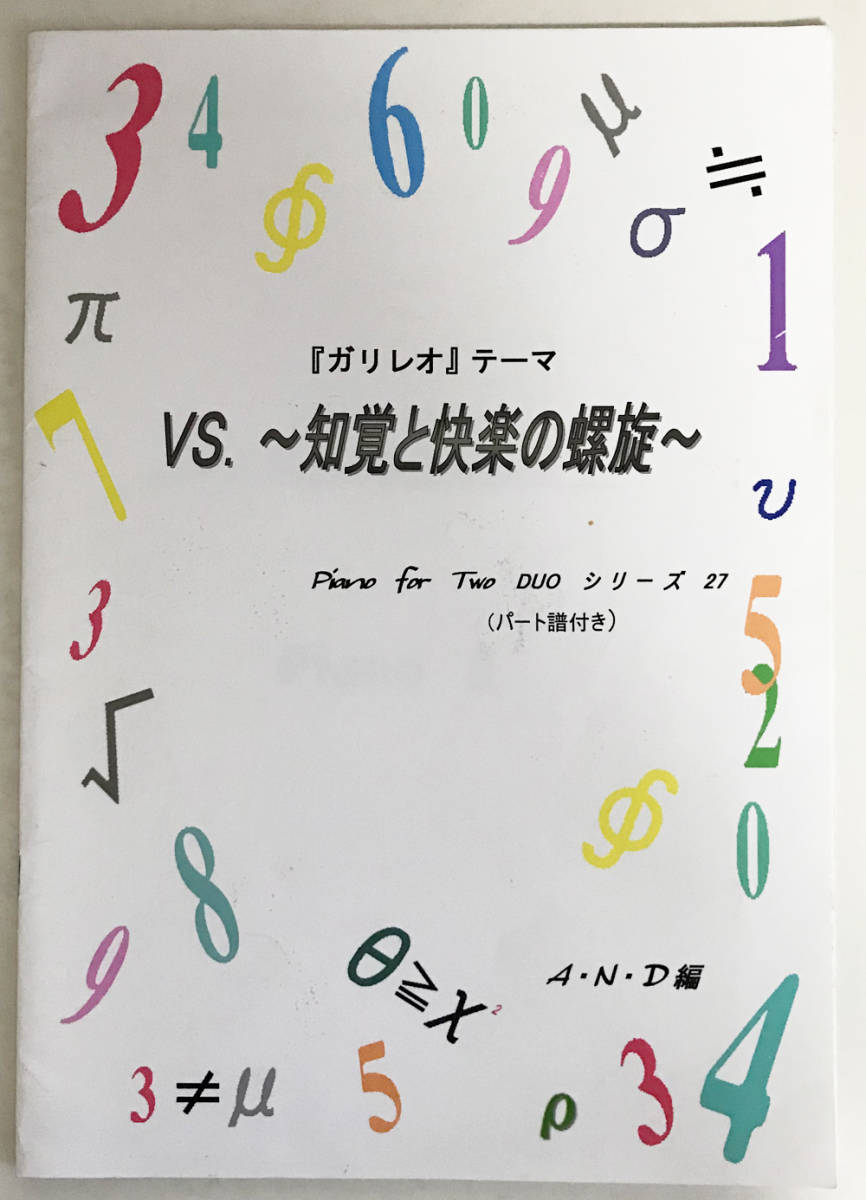 3 4 6 0 9 μ ≒
∮ σ
1
π
『ガリレオ』テーマ
7
VS. ～知覚と快楽の螺旋～
υ
Piano for Two DUO シリーズ 27
(パート譜付き)
3 5
√ 2
∮ 0
8
9 θ≧χ²
A・N・D編
3≠μ 5 ρ 3 4